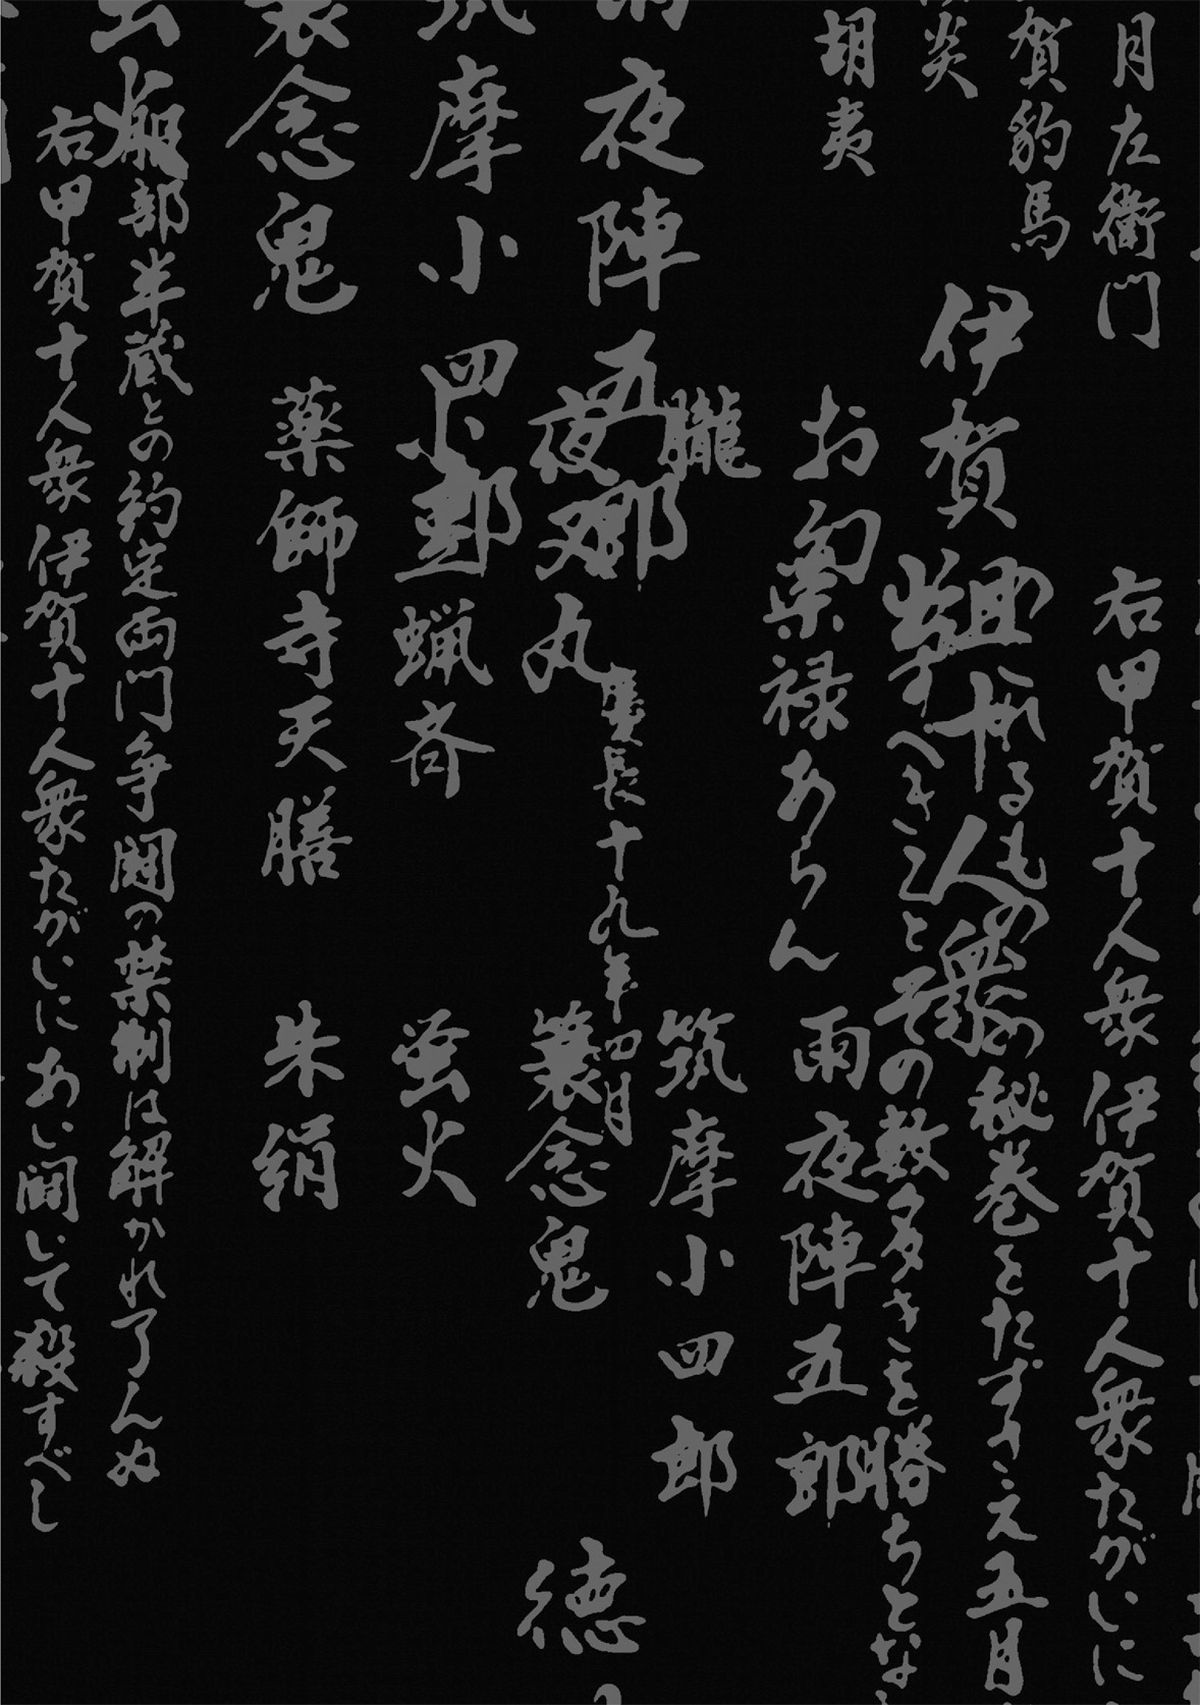 月左衛門
賀豹馬
炎
胡夷
右甲賀十人衆伊賀十人衆たがいに
伊賀組十人衆
るもの この秘巻をたずさえ五月
出すべきことその数多きを勝ちとな
お胡夷
禄あらん
雨夜陣五郎
朧
筑摩小四郎
夜陣五郎
慶長十九年四月
徳
夜叉丸
簔念鬼
摩小四郎
小豆蝋斉
蛍火
念鬼
薬師寺天膳
朱絹
服部半蔵との約定両門争闘の禁制は解かれ了んぬ
右甲賀十人衆伊賀十人衆たがいにあい闘いて殺すべし